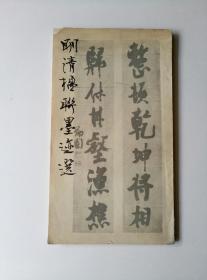 整頓乾坤將相
歸休林壑漁樵
明清楹聯墨迹選